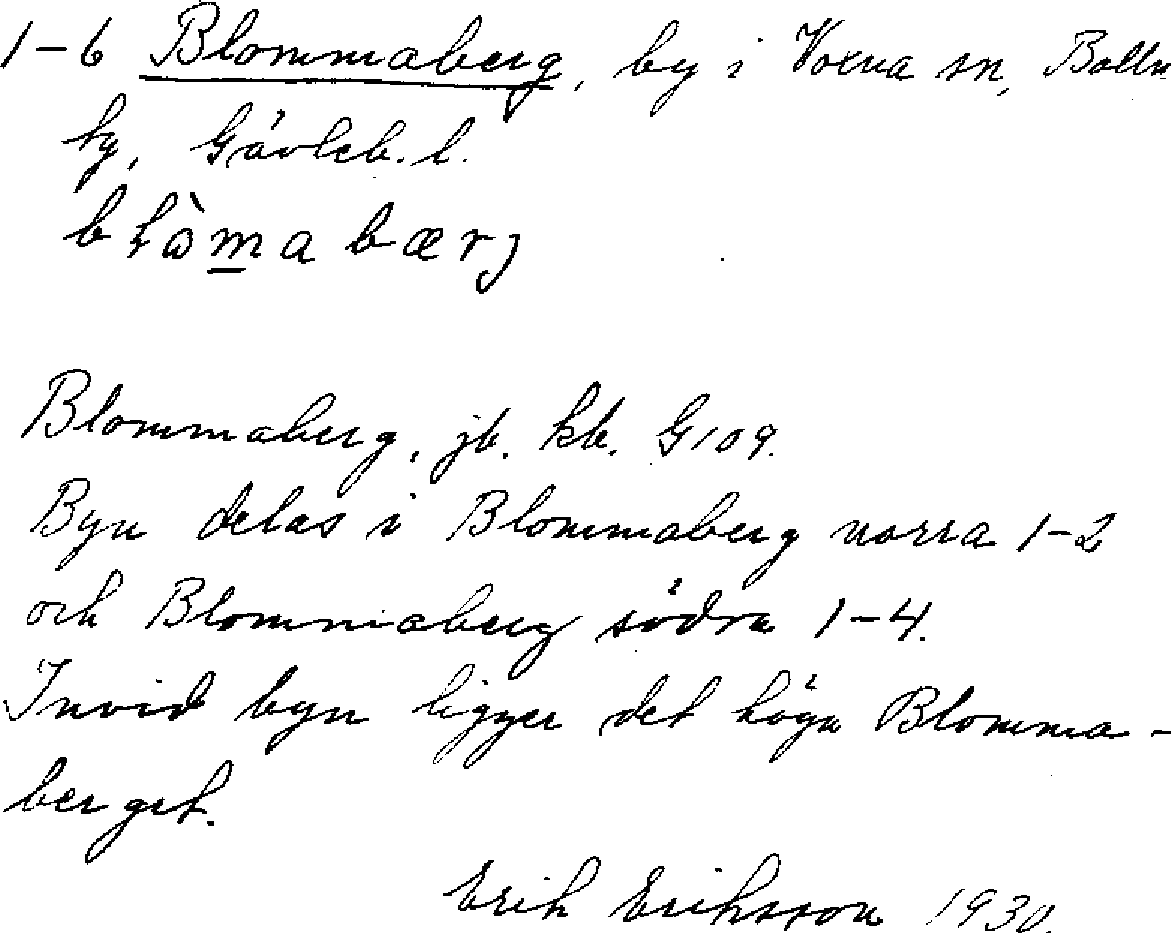 1-6 Blommaberg, by i Voxna sn, Bolln
tg, Gävleb. l.
bɫòmabærj
Blommaberg, jb. kb. G109.
Byn delas i Blommaberg norra 1-2
och Blommaberg södra 1-4.
Invid byn ligger det höga Blomma-
berget.
Erik Eriksson 1930.